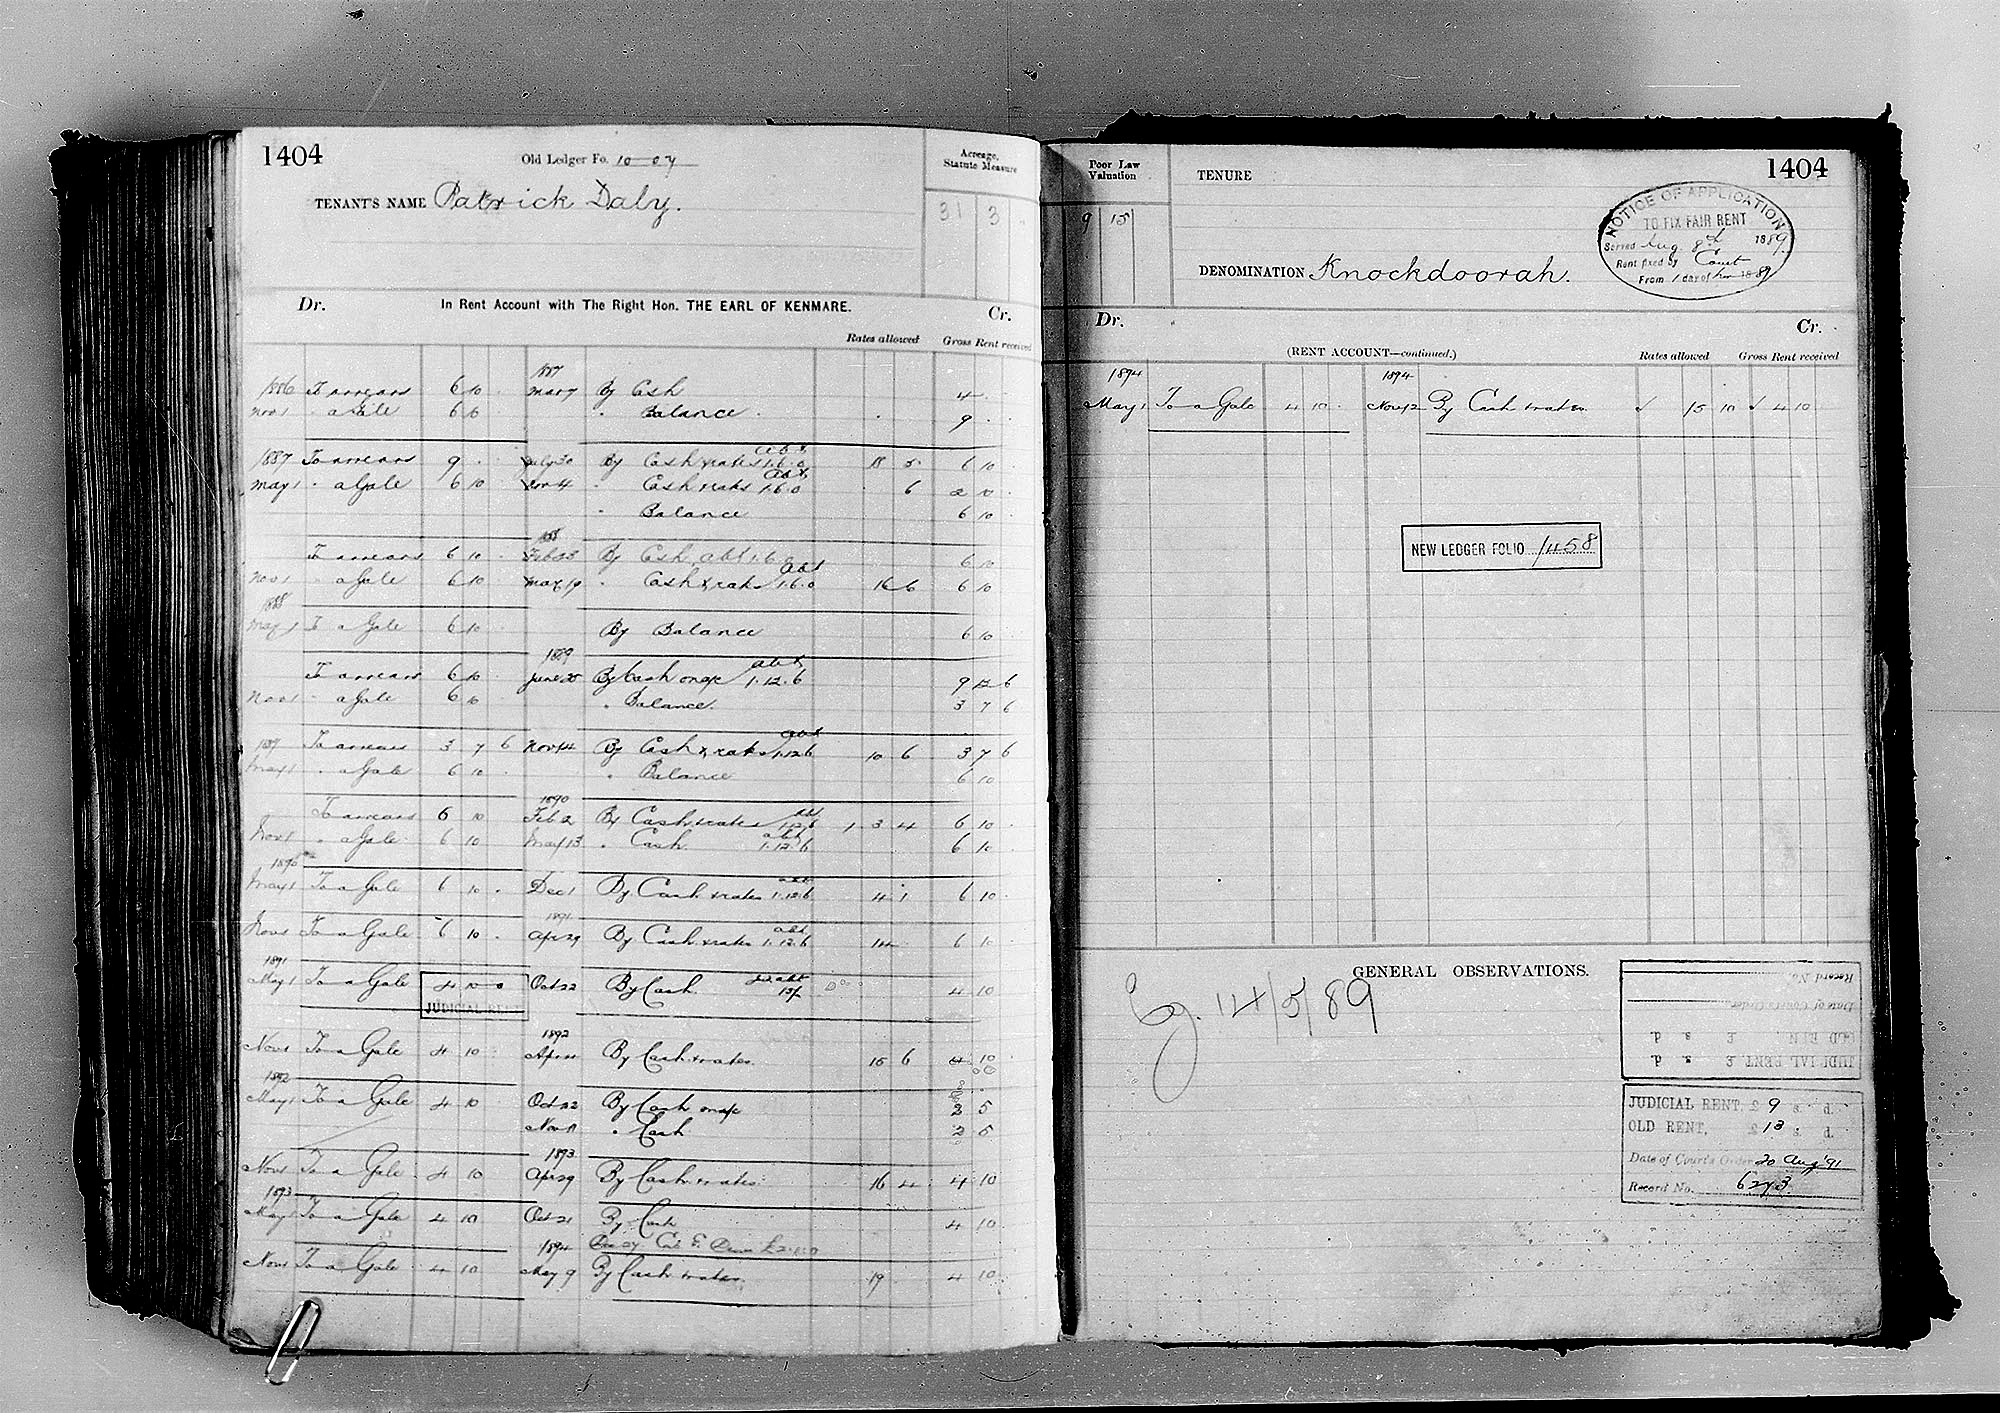 1404
Old Ledger Fo. 10 07
TENANT'S NAME Patrick Daly.
Acreage, Statute Measure
31 3
Dr. In Rent Account with The Right Hon. THE EARL OF KENMARE. Cr.
Rates allowed Gross Rent received
1887
1886 To arrears 6 10 . Mar 7 By Cash 4 . .
Nov 1 " a Gale 6 10 " Balance . 9 . .
abt
1887 To arrears 9 . . July 30 By Cash & rates 1.6.0 18 5 6 10 .
abt
May 1 " a Gale 6 10 . Nov 4 " Cash & rates 1.6.0 . 6 2 10 .
" Balance 6 10 .
188
To arrears 6 10 . Feb 23 By Cash abt 1.6.0 6 10
abt
Nov 1 " a Gale 6 10 . May 19 " Cash & rates 1.6.0 16 6 6 10
1888
May 1 To a Gale 6 10 By Balance 6 10
1889 abt
To arrears 6 10 . June 25 By Cash on a/c 1.12.6 9 12 6
Nov 1 " a Gale 6 10 " Balance. 3 7 6
abt
1889 To arrears 3 7 6 Nov 14 By Cash & rates 1.12.6 10 6 3 7 6
May 1 " a Gale 6 10 . " Balance 6 10
1890 abt
To arrears 6 10 Feb 2 By Cash & rates 1.12.6 1 3 4 6 10 .
abt
Nov 1 " a Gale 6 10 May 13 " Cash 1.12.6 6 10 .
1890 abt
May 1 To a Gale 6 10 . Dec 1 By Cash & rates 1.12.6 4 1 6 10 .
1891 abt
Nov 1 To a Gale 6 10 . Apr 29 By Cash & rates 1.12.6 14 6 10
1891
May 1 To a Gale 4 10 0 Oct 22 By Cash abt 4 10
JUDICIAL RENT
1892
Nov 1 To a Gale 4 10 Apr 4 By Cash & rates. 15 6 4 10
1892
May 1 To a Gale 4 10 Oct 22 By Cash on a/c 2 5
Nov 11 " Cash 2 5
1893
Nov 1 To a Gale 4 10 Apr 29 By Cash & rates. 16 4 4 10
1893
May 1 To a Gale 4 10 Oct 21 By Cash 4 10
1894
Nov 1 To a Gale 4 10 May 9 By Cash & rates. 19 4 10
Poor Law Valuation
9 15
TENURE
1404
NOTICE OF APPLICATION
TO FIX FAIR RENT
Served Aug. 8th 1889.
Rent fixed by Court
From 1 day of Nov 1889
DENOMINATION Knockdoorah.
Dr. Cr.
(RENT ACCOUNT—continued.) Rates allowed Gross Rent received
1894 1894
May 1 To a Gale 4 10 . Nov 12 By Cash & rates. 15 10 4 10
NEW LEDGER FOLIO 1458
GENERAL OBSERVATIONS.
14/5/89
Record No.
Date of Court's Order
OLD REN, £ s d.
JUDICIAL RENT £ s d
JUDICIAL RENT, £ 9 s. d.
OLD RENT, £ 13 s. d.
Date of Court's Order 20 Aug '91
Record No. 6273